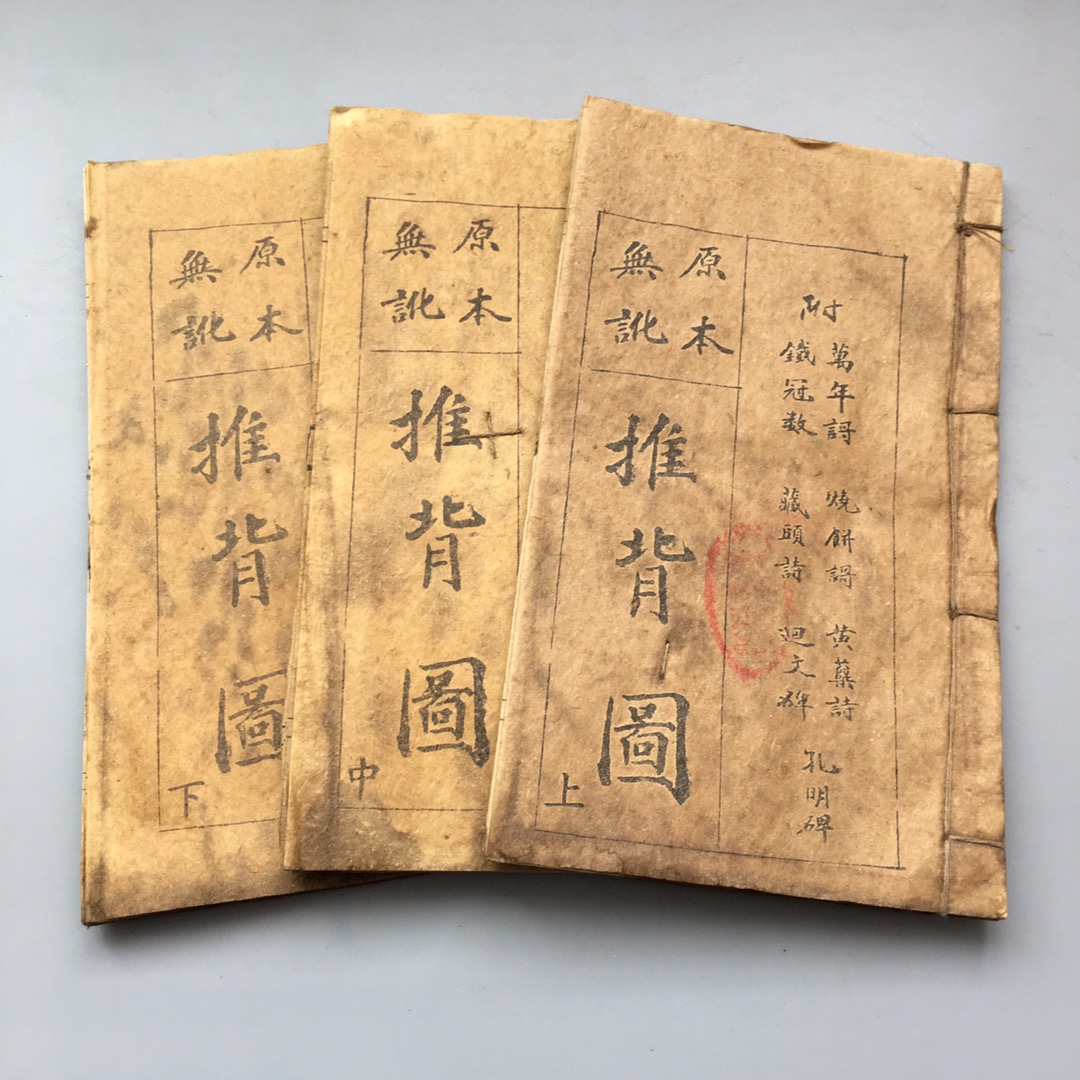 附
萬年謌 燒餅謌 黄蘗詩
鐵冠数 藏頭詩 迴文碑
孔明碑
原本
無訛
推背圖
上
原本
無訛
推背圖
中
原本
無訛
推背圖
下